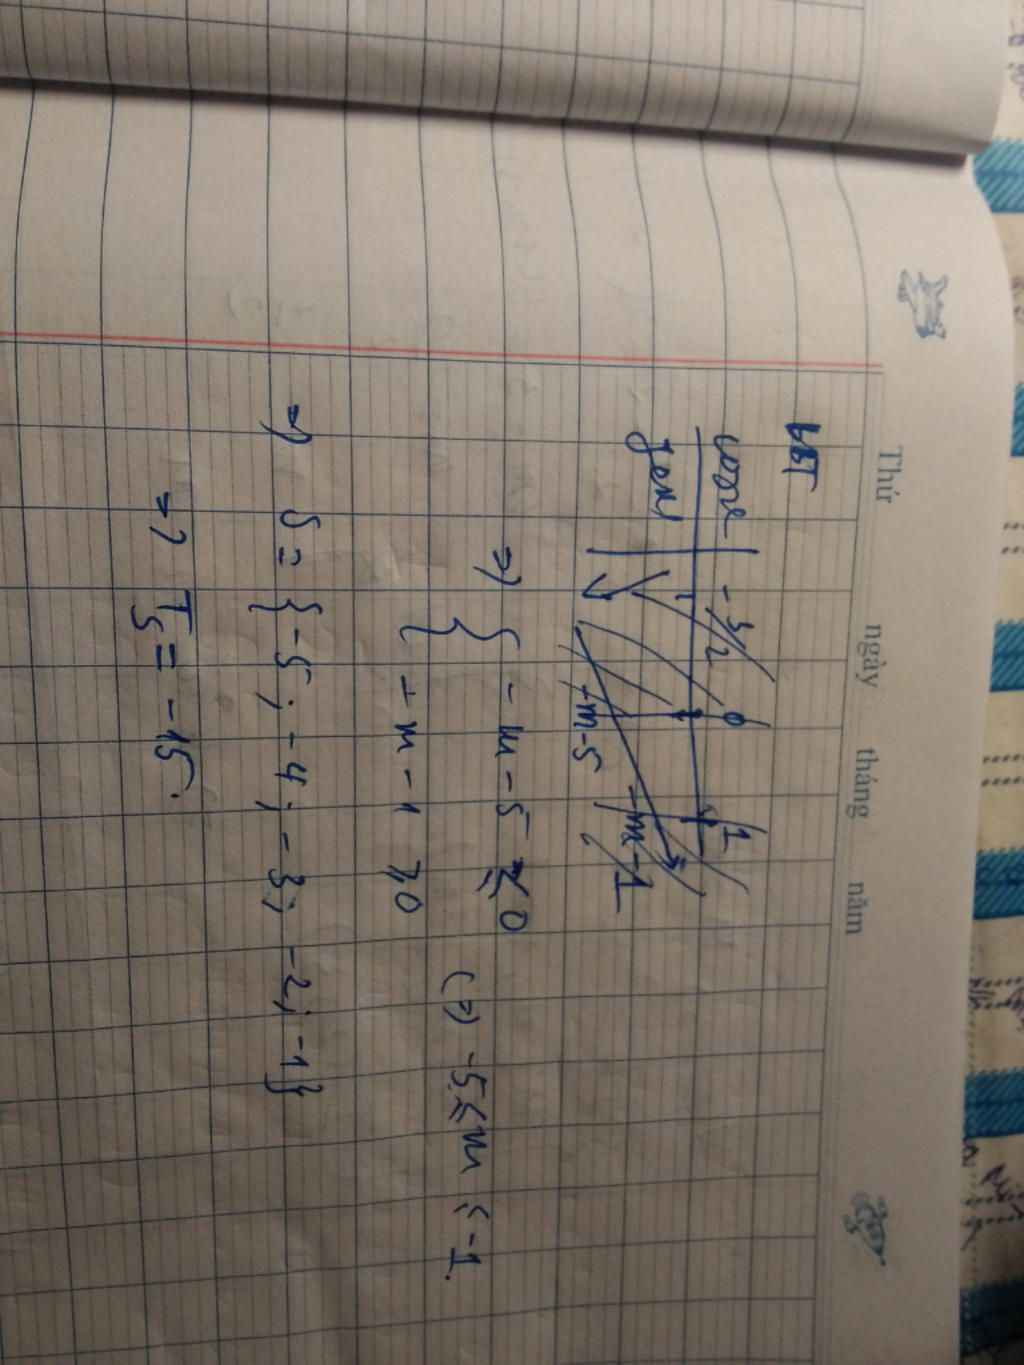 Thứ ngày tháng năm
BBT
cosx -3/2 0 1
g(cosx)
-m-5 -m-1
=> { -m-5 ≤ 0
{ -m-1 ≥ 0 (=) -5 ≤ m ≤ -1.
=> S = {-5; -4; -3; -2; -1}
=> Ts = -15.